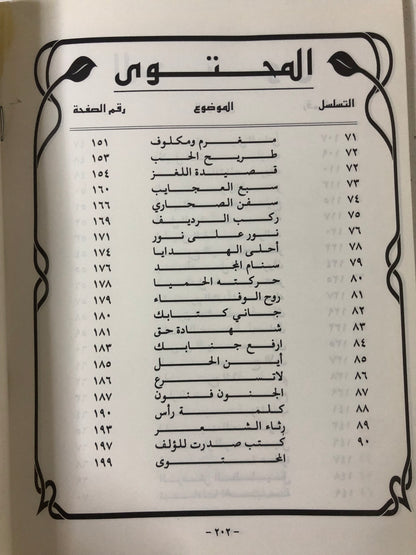 المحتوى
التسلسل الموضوع رقم الصفحة
٧١ مغرم ومكلوف ١٥١
٧٢ طريح الحب ١٥٣
٧٢ قصيدة اللغز ١٥٤
٧٣ سبع العجايب ١٦٠
٧٤ سفن الصحاري ١٦٦
٧٥ ركب الرديف ١٦٩
٧٦ نور على نور ١٧١
٧٨ أحلى الهدايا ١٧٤
٧٩ سنام المجد ١٧٦
٨٠ حركته الحميا ١٧٨
٨١ روح الوفاء ١٧٩
٨٢ جاني كتابك ١٨٠
٨٣ شهادة حق ١٨١
٨٤ ارفع جنابك ١٨٣
٨٥ أين الخل ١٨٥
٨٦ لاتسرع ١٨٦
٨٧ الجنون فنون ١٨٧
٨٨ كلمة رأس ١٩٠
٨٩ رثاء الشعر ١٩٣
٩٠ كتب صدرت للمؤلف ١٩٧
المحتوى ١٩٩
- ٢٠٢ -